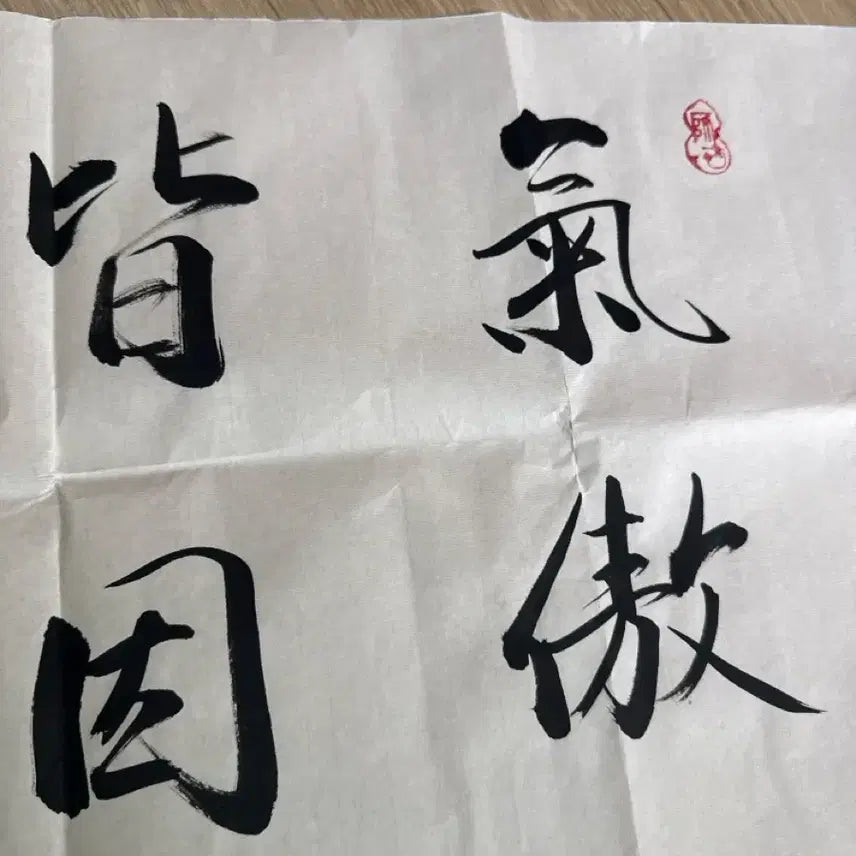 氣傲
皆因